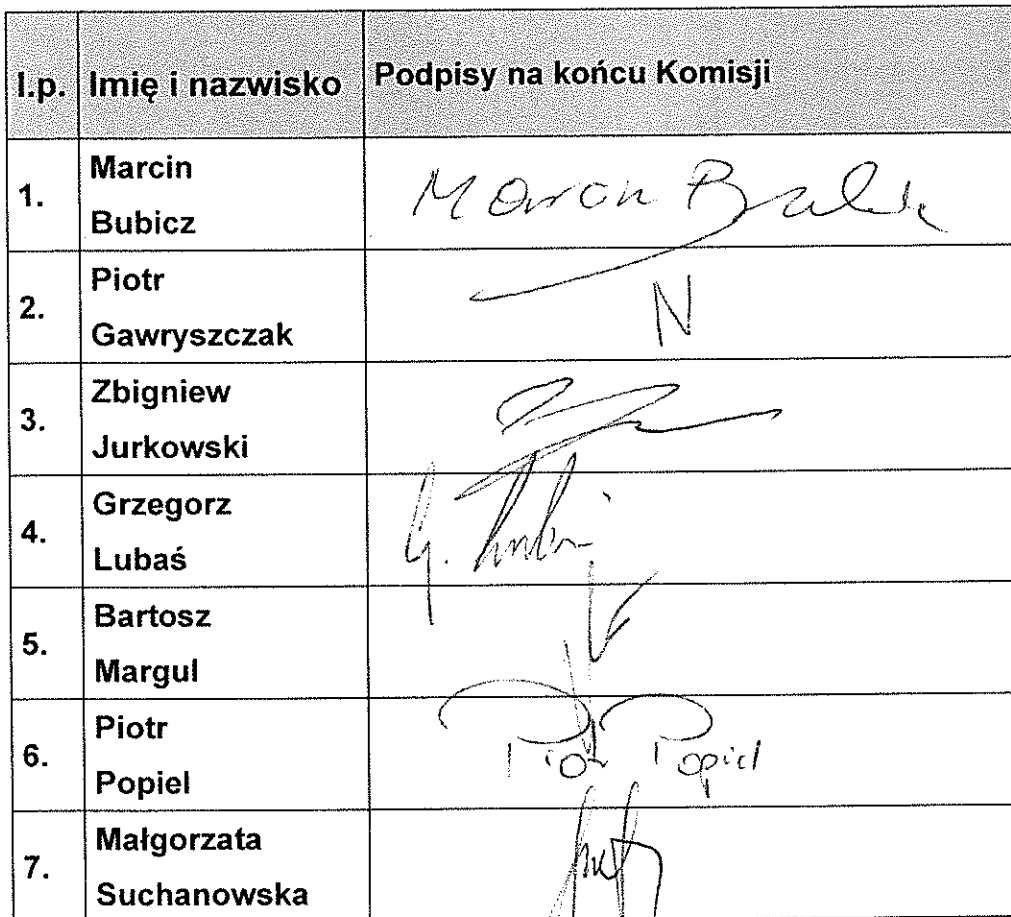 l.p. Imię i nazwisko Podpisy na końcu Komisji
1. Marcin Bubicz Marcin
2. Piotr Gawryszczak N
3. Zbigniew Jurkowski
4. Grzegorz Lubaś G.
5. Bartosz Margul
6. Piotr Popiel Piotr Popiel
7. Małgorzata Suchanowska